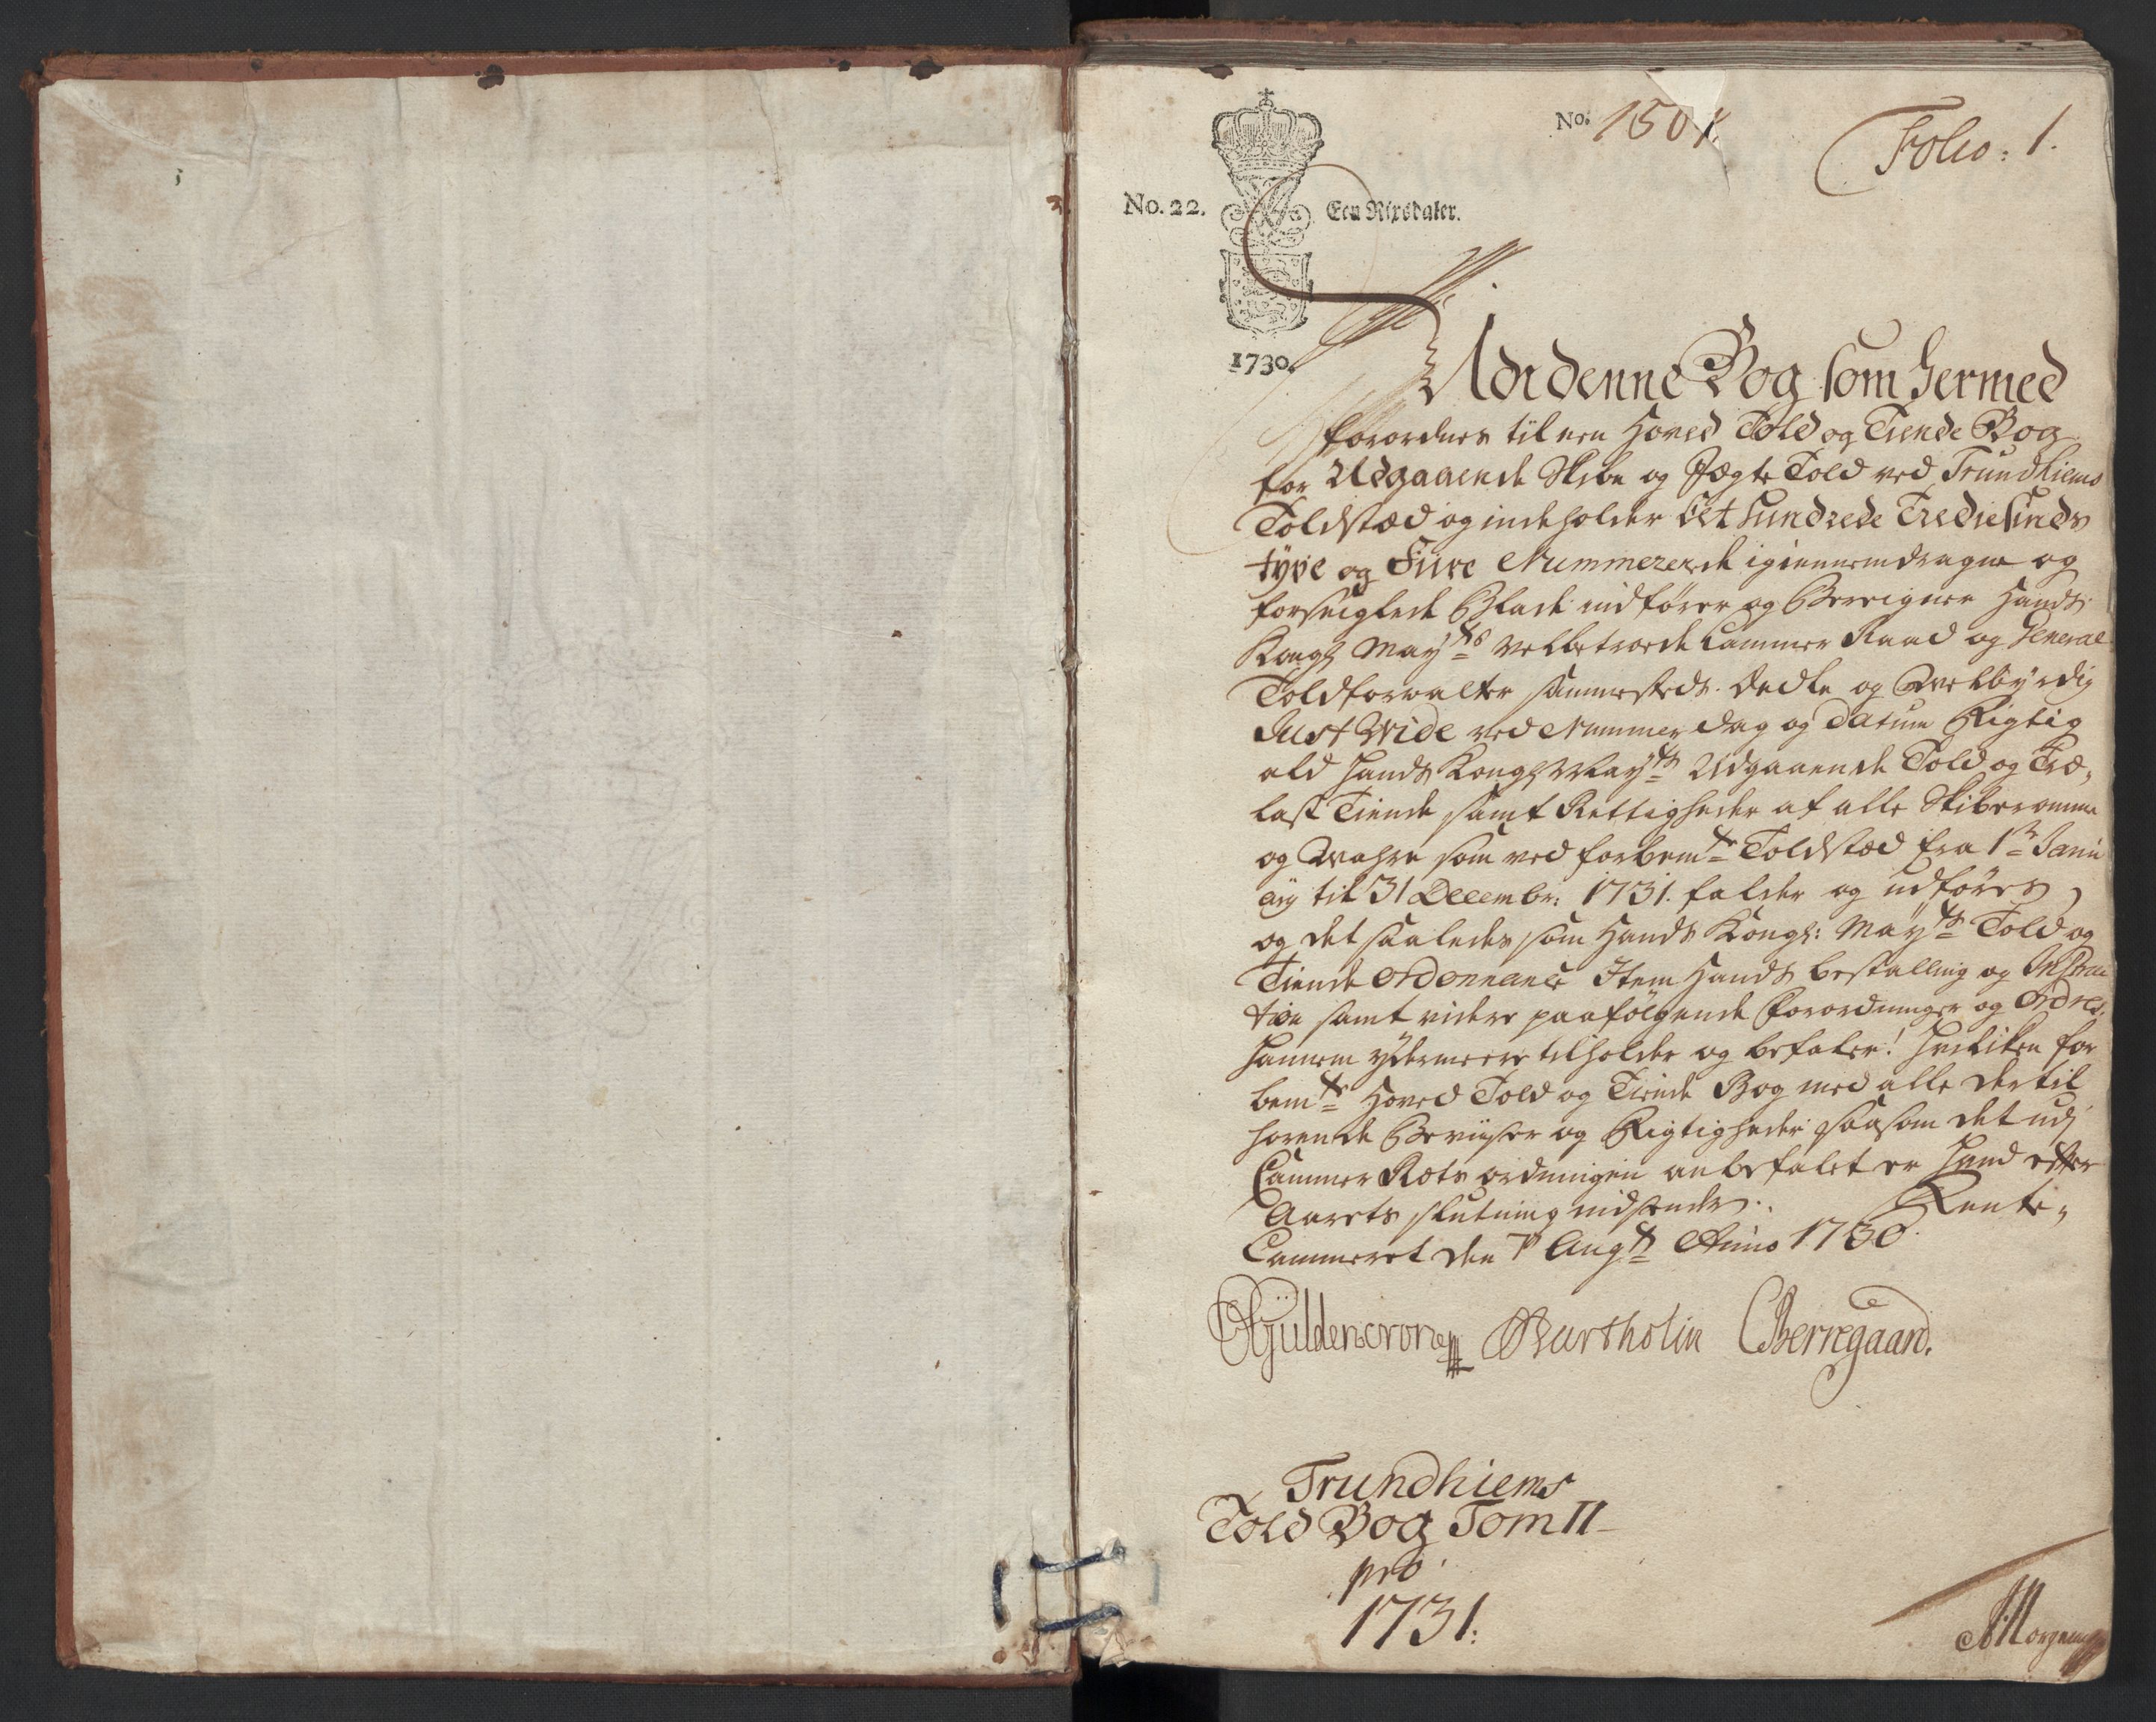 No. 1501
Folio: 1.
No. 22. Een Rixsdaler.
1730.
Udi denne Bog som hermed
forordnes til een Hoved Told og Tiende Bog
for Udgaaende Skibe og Jægte Told ved Trundhiems
Toldstæd og indeholder Eet hundrede Trediesinds
tyve og Fiire Nummererede igiennemdragne og
forseiglede Blade indfører og Bereigner Hands
Kongl May:ts velbetroede Cammer Raad og General
Toldforvalter sammesteds. Ædle og Welbyrdig
Just Wide ved Nummer dag og Datum Rigtig
ald Hands Kongl May:ts Udgaaende Told og Træ-
last Tiende samt Rettigheder af alle Skiberomme
og Wahre som ved forbem:te Toldstæd fra 1:te Janu
arij til 31 Decembr: 1731. falder og udføres,
og det saaledes som Hands Kongl: May:ts Told og
Tiende Ordonnance Item Hands bestalling og Instruc
tion samt videre paafølgende Forordninger og Ordres
hannem ydermeere tilholder og befaler! Hvilken for
bem:te Hoved Told og Tiende Bog med alle dertil
hørende Beviiser og Rigtigheder saasom det udj
Cammer Rets ordningen anbefalet er Hand efter
Aarets slutning indsender. Rente-
Cammeret den 7 Aug:ti Anno 1730.
Gyldencrone Bartholin CBerregaard.
Trundhiems
Told Bog Tom II
pro
1731.